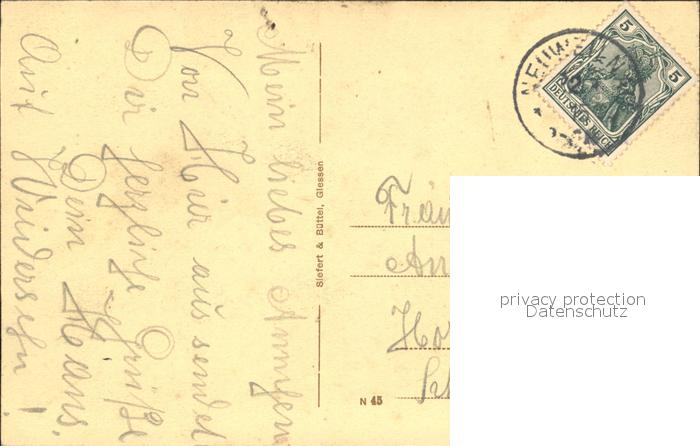 Mein liebes Annchen
Von Hier aus sendet
Dir herzliche Grüße
Dein Hans.
Auf Wiedersehn!
Siefert & Büttel, Giessen
N 45
NEUWE
5
5
DEUTSCHES REICH
Fräu
An
Ho
privacy protection
Datenschutz